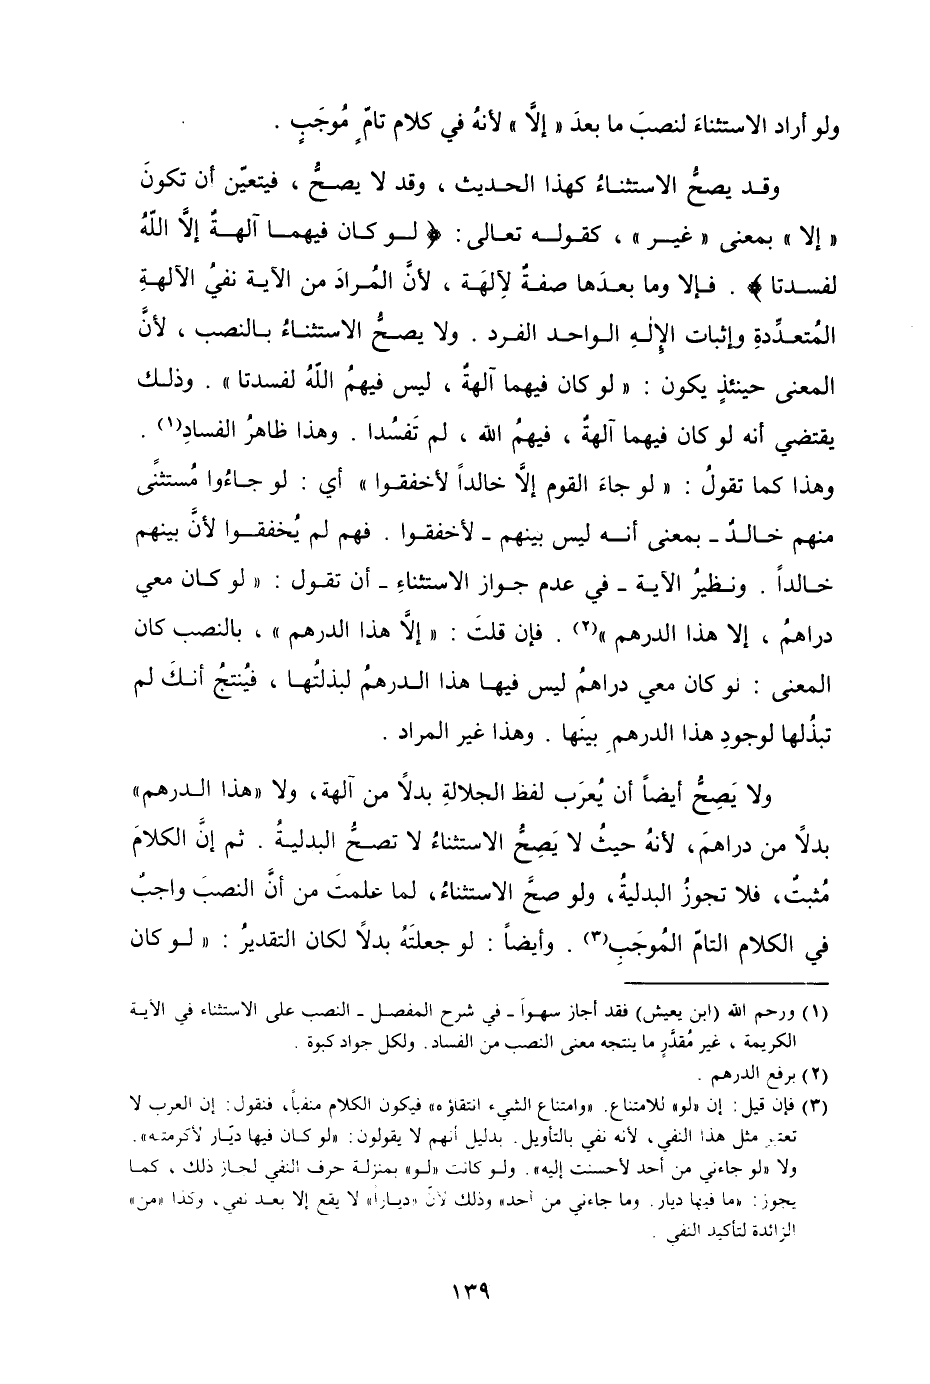 ولو أراد الاستثناءَ لنصبَ ما بعدَ « إلَّا » لأنهُ في كلام تامٍّ مُوجَبٍ .
وقـد يصحُّ الاستثنـاءُ كهذا الحديث ، وقد لا يصـحُّ ، فيتعيّن أن تكونَ
« إلا » بمعنى « غيـر » ، كقولـه تعـالى : ﴿ لـو كان فيهمـا آلهـةٌ إلَّا اللّهُ
لفسـدتا ﴾ . فـإلا وما بعـدَها صفـةٌ لآلِهَة ، لأنَّ المُـرادَ من الآيـة نفيُ الآلهـةِ
المُتعـدِّدةِ وإثبات الإِلٰهِ الـواحـد الفـرد . ولا يصـحُّ الاستثنـاءُ بـالنصب ، لأنَّ
المعنى حينئذٍ يكون : « لو كان فيهما آلهةٌ ، ليس فيهمُ اللّهُ لفسدتا » . وذلـك
يقتضي أنه لو كان فيهما آلهةٌ ، فيهمُ الله ، لم تَفسُدا . وهذا ظاهرُ الفسادِ(١) .
وهذا كما تقولُ : « لو جاءَ القوم إلَّا خالداً لأخفقـوا » أي : لو جـاءُوا مُستثنًى
منهم خـالـدٌ ـ بمعنى أنـه ليس بينهم ـ لأخفقـوا . فهم لم يُخفقـوا لأنَّ بينهم
خـالداً . ونـظيرُ الآيـة ـ في عدم جـواز الاستثناءِ ـ أن تقـول : « لو كـان معي
دراهمُ ، إلا هذا الدرهم »(٢) . فإن قلتَ : « إلَّا هذا الدرهم » ، بالنصب كان
المعنى : نو كان معي دراهمُ ليس فيهـا هذا الـدرهمُ لبذلتُهـا ، فيُنتجُ أنـكَ لم
تبذُلها لوجودِ هذا الدرهمِ بينَها . وهذا غير المراد .
ولا يَصِحُّ أيضاً أن يُعرَب لفظ الجلالةِ بدلاً من آلهة، ولا «هذا الـدرهم»
بدلاً من دراهمَ، لأنهُ حيثُ لا يَصِحُّ الاستثناءُ لا تصـحُّ البدليـةُ . ثم إنَّ الكلامَ
مُثبتٌ، فلا تجوزُ البدليةُ، ولو صحَّ الاستثناءُ، لما علمتَ من أنَّ النصبَ واجبٌ
في الكلام التامّ المُوجَبِ(٣) . وأيضاً : لو جعلتَهُ بدلاً لكان التقديرُ : « لـو كان
(١) ورحم الله (ابن يعيش) فقد أجاز سهواً ـ في شرح المفصل ـ النصب على الاستثناء في الآيـة
الكريمة ، غير مُقدَّرٍ ما ينتجه معنى النصب من الفساد. ولكل جواد كبوة .
(٢) برفع الدرهم .
(٣) فإن قيل: إن «لو» للامتناع. «وامتناع الشيء انتفاؤه» فيكون الكلام منفياً، فنقول: إن العرب لا
تعتبر مثل هذا النفي، لأنه نفي بالتأويل. بدليل أنهم لا يقولون: «لو كـان فيها ديّـار لأكرمتـه».
ولا «لو جاءني من أحد لأحسنت إليه». ولـو كانت «لـو» بمنزلـة حرف النفي لجاز ذلك ، كمـا
يجوز: «ما فيها ديار. وما جاءني من أحد» وذلك لأنّ «ديـاراً» لا يقع إلا بعـد نفي، وكذا «من»
الزائدة لتأكيد النفي .
١٣٩